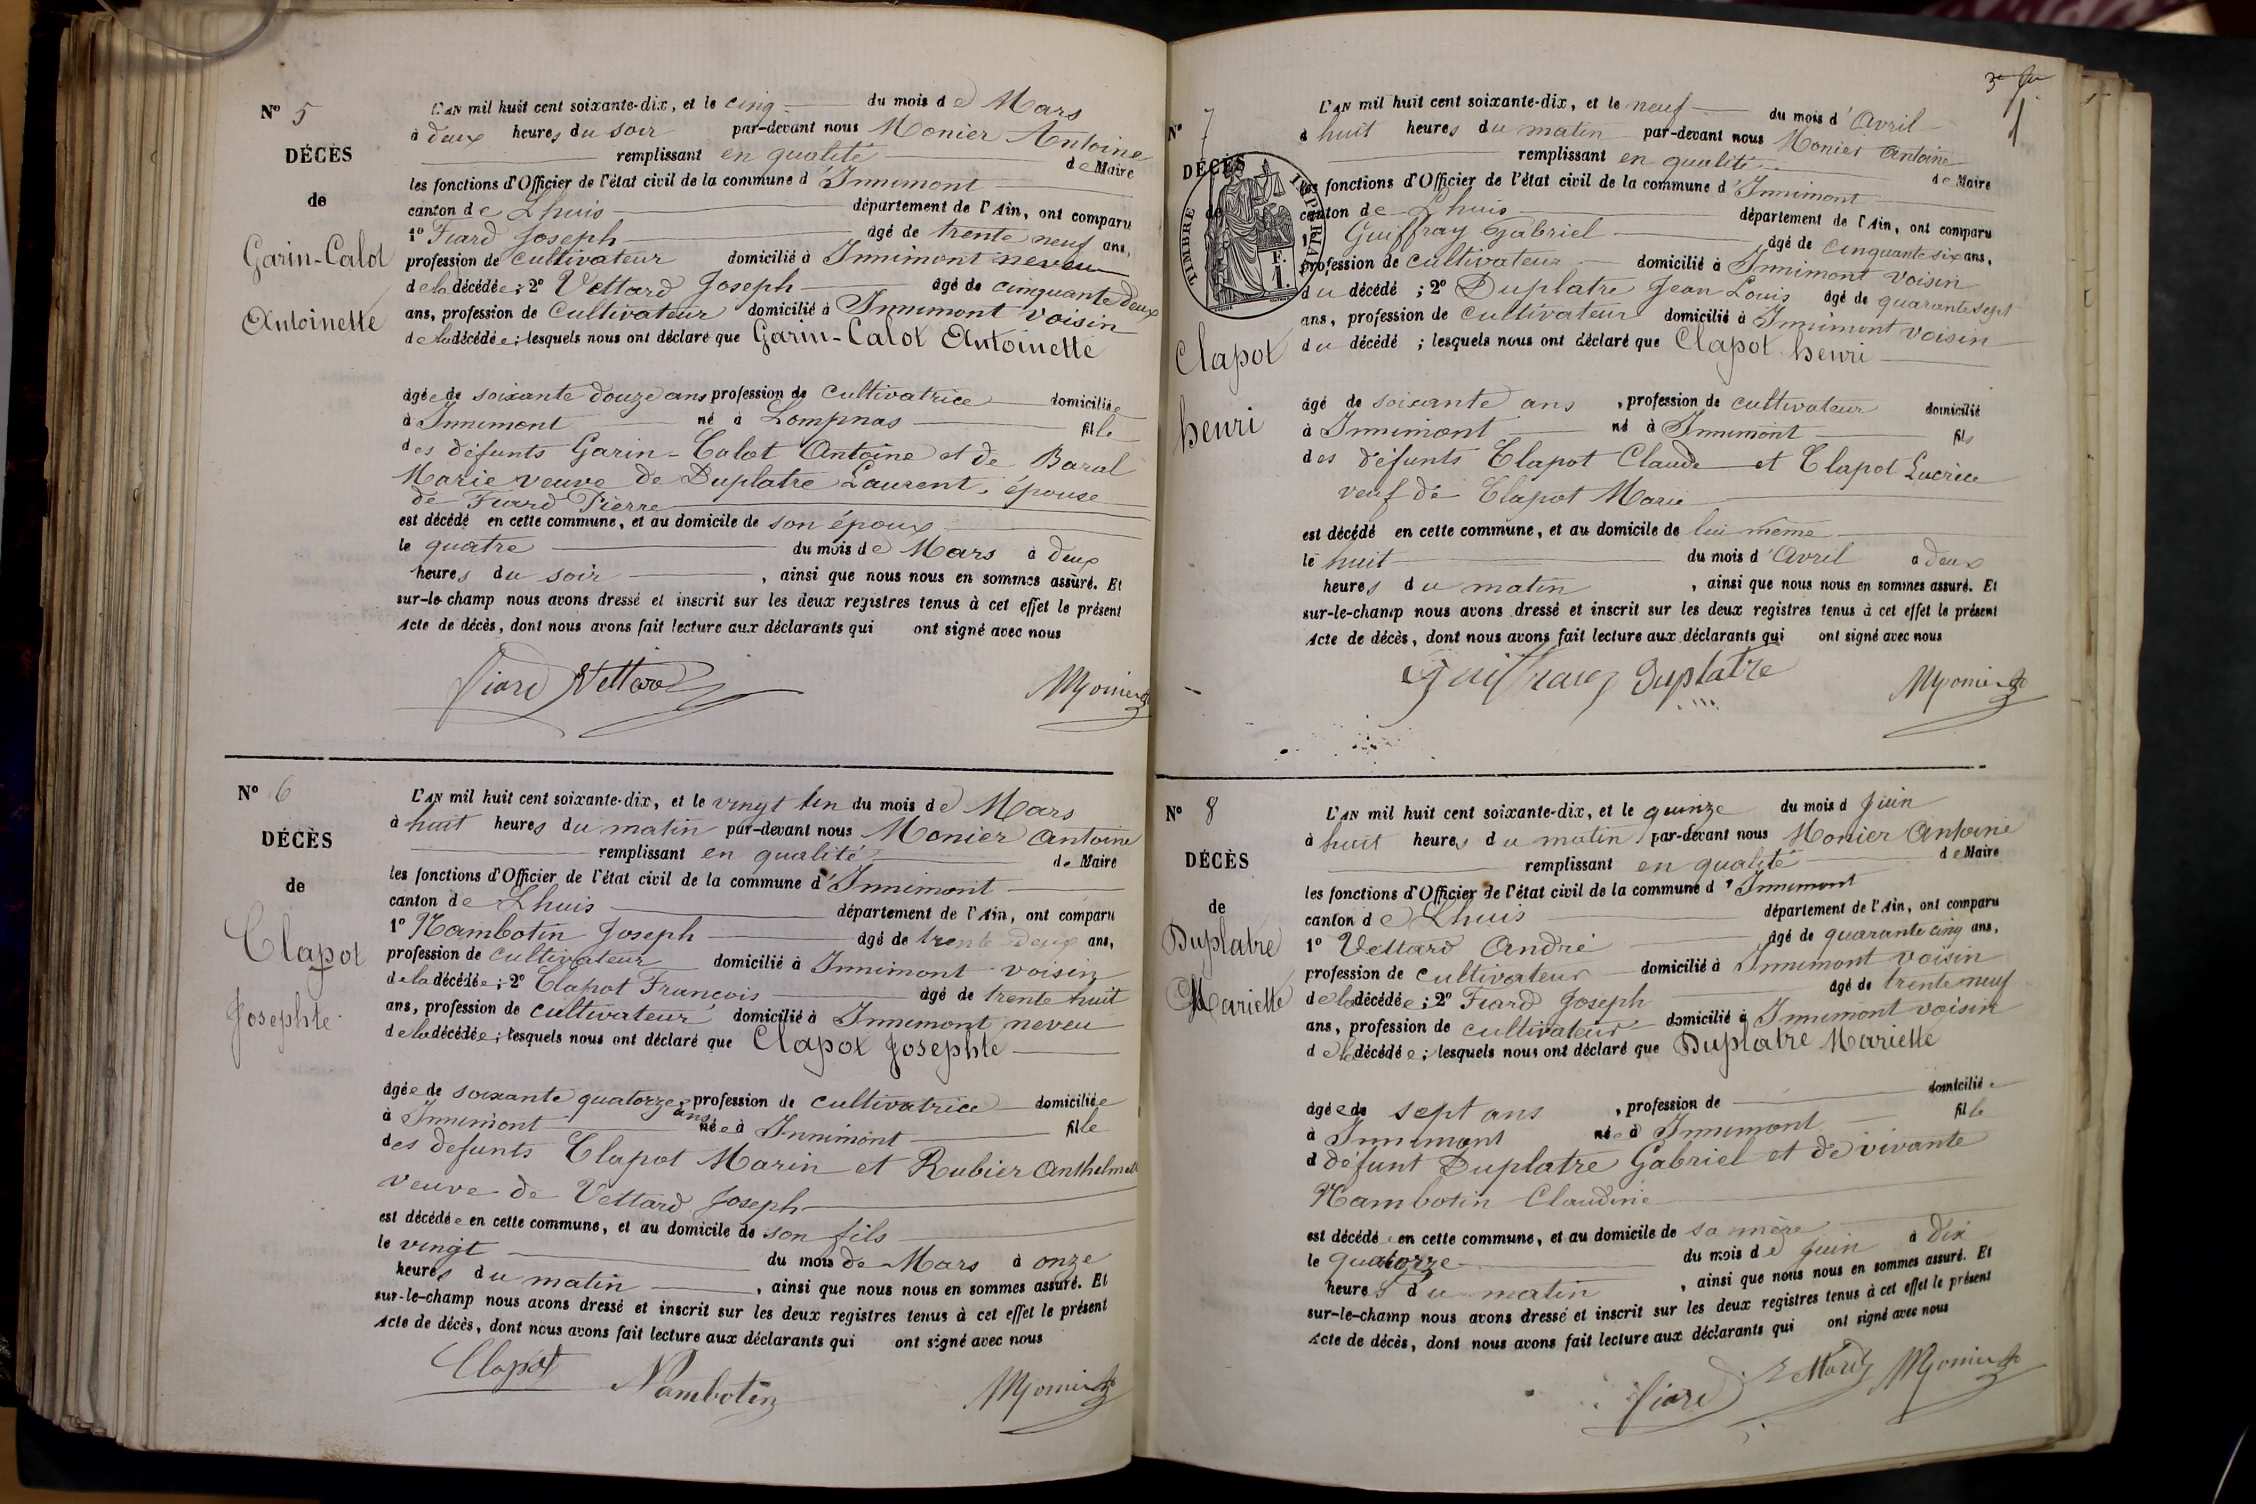 Nº 5
DÉCÈS
de
Garin-Calot
Antoinette
L'AN mil huit cent soixante-dix, et le cinq du mois de Mars
à deux heures du soir par-devant nous Monier Antoine
remplissant en qualité de Maire
les fonctions d'Officier de l'état civil de la commune d'Innimont
canton de Lhuis département de l'Ain, ont comparu
1º Fiard Joseph âgé de trente neuf ans,
profession de cultivateur domicilié à Innimont neveu
de la décédée ; 2º Vettard Joseph âgé de cinquante deux
ans, profession de Cultivateur domicilié à Innimont voisin
de la décédée ; lesquels nous ont déclaré que Garin-Calot Antoinette
âgée de soixante douze ans profession de cultivatrice domiciliée
à Innimont né à Lompnas fille
des défunts Garin-Calot Antoine et de Baral
Marie veuve de Duplatre Laurent, épouse
de Fiard Pierre
est décédé en cette commune, et au domicile de son époux
le quatre du mois de Mars à deux
heures du soir , ainsi que nous nous en sommes assuré. Et
sur-le-champ nous avons dressé et inscrit sur les deux registres tenus à cet effet le présent
Acte de décès, dont nous avons fait lecture aux déclarants qui ont signé avec nous
Fiard Vettard Monier
Nº 6
DÉCÈS
de
Clapot
Josephte
L'AN mil huit cent soixante-dix, et le vingt un du mois de Mars
à huit heures du matin par-devant nous Monier Antoine
remplissant en qualité de Maire
les fonctions d'Officier de l'état civil de la commune d'Innimont
canton de Lhuis département de l'Ain, ont comparu
1º Nambotin Joseph âgé de trente deux ans,
profession de cultivateur domicilié à Innimont voisin
de la décédée ; 2º Clapot François âgé de trente huit
ans, profession de cultivateur domicilié à Innimont neveu
de la décédée ; lesquels nous ont déclaré que Clapot Josephte
âgée de soixante quatorze ans, profession de cultivatrice domiciliée
à Innimont née à Innimont fille
des defunts Clapot Marin et Rubier Anthelmette
veuve de Vettard Joseph
est décédée en cette commune, et au domicile de son fils
le vingt du mois de Mars à onze
heures du matin , ainsi que nous nous en sommes assuré. Et
sur-le-champ nous avons dressé et inscrit sur les deux registres tenus à cet effet le présent
Acte de décès, dont nous avons fait lecture aux déclarants qui ont signé avec nous
Clapot Nambotin Monier
Nº 7
DÉCÈS
de
Clapot
henri
TIMBRE IMPÉRIAL
1 F.
L'AN mil huit cent soixante-dix, et le neuf du mois d'Avril
à huit heures du matin par-devant nous Monier Antoine
remplissant en qualité de Maire
les fonctions d'Officier de l'état civil de la commune d'Innimont
canton de Lhuis département de l'Ain, ont comparu
1º Guiffray Gabriel âgé de cinquante six ans,
profession de cultivateur domicilié à Innimont voisin
du décédé ; 2º Duplatre Jean Louis âgé de quarante sept
ans, profession de cultivateur domicilié à Innimont voisin
du décédé ; lesquels nous ont déclaré que Clapot henri
âgé de soixante ans , profession de cultivateur domicilié
à Innimont né à Innimont fils
des défunts Clapot Claude et Clapot Lucrèce
veuf de Clapot Marie
est décédé en cette commune, et au domicile de lui même
le huit du mois d'Avril à deux
heures du matin , ainsi que nous nous en sommes assuré. Et
sur-le-champ nous avons dressé et inscrit sur les deux registres tenus à cet effet le présent
Acte de décès, dont nous avons fait lecture aux déclarants qui ont signé avec nous
Guiffray Duplatre Monier
Nº 8
DÉCÈS
de
Duplatre
Mariette
L'AN mil huit cent soixante-dix, et le quinze du mois d Juin
à huit heures du matin par-devant nous Monier Antoine
remplissant en qualité de Maire
les fonctions d'Officier de l'état civil de la commune d'Innimont
canton de Lhuis département de l'Ain, ont comparu
1º Vettard André âgé de quarante cinq ans,
profession de cultivateur domicilié à Innimont voisin
de la décédée ; 2º Fiard Joseph âgé de trente neuf
ans, profession de cultivateur domicilié à Innimont voisin
de la décédée ; lesquels nous ont déclaré que Duplatre Mariette
âgée de sept ans , profession de domiciliée
à Innimont née à Innimont fille
d défunt Duplatre Gabriel et de vivante
Nambotin Claudine
est décédée en cette commune, et au domicile de sa mère
le quatorze du mois de Juin à dix
heures du matin , ainsi que nous nous en sommes assuré. Et
sur-le-champ nous avons dressé et inscrit sur les deux registres tenus à cet effet le présent
Acte de décès, dont nous avons fait lecture aux déclarants qui ont signé avec nous
Fiard Vettard Monier